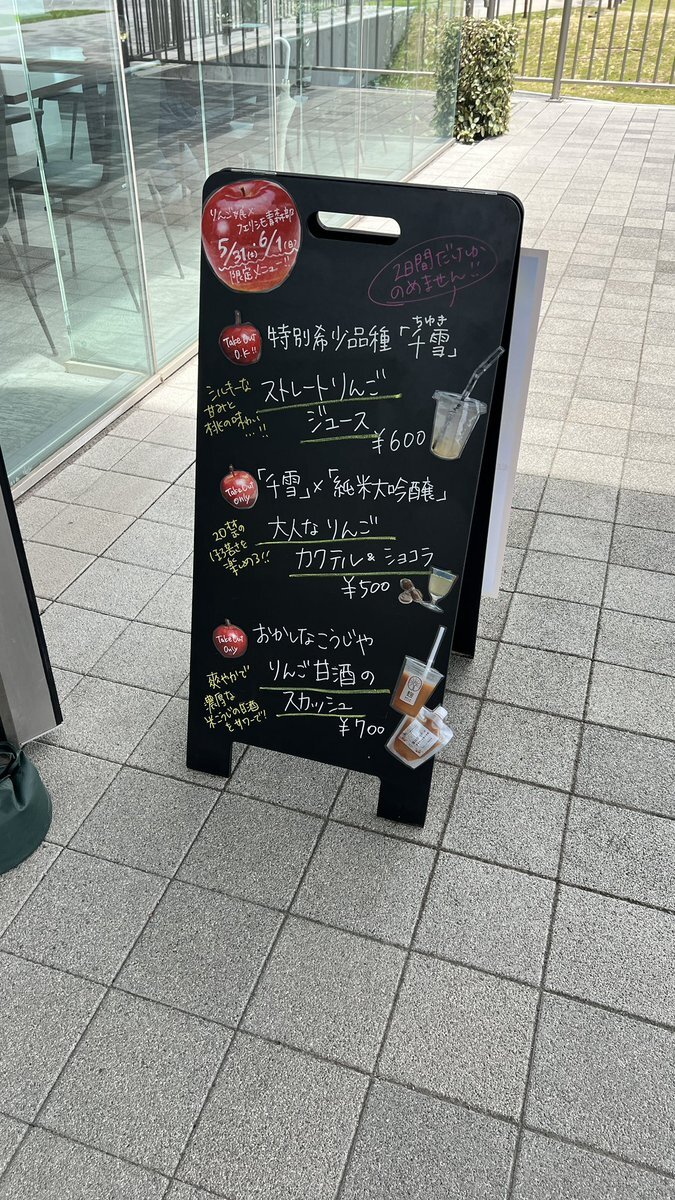 りんご飴×
フェリシモ青森部
5/31(土)・6/1(日)
限定メニュー!!
2日間だけしか
のめません!!
Take Out
O.K!!
特別希少品種「千雪」
ちゆき
シルキーな
甘みと
桃の味わい
…!!
ストレートりんご
ジュース
¥600
Take Out
Only
「千雪」×「純米大吟醸」
楽しめる!!
大人なりんご
カクテル&ショコラ
¥500
Take Out
Only
おかしなこうじや
りんご甘酒の
スカッシュ
¥700
爽やかで
濃厚な
米こうじの甘酒
をサワーで!